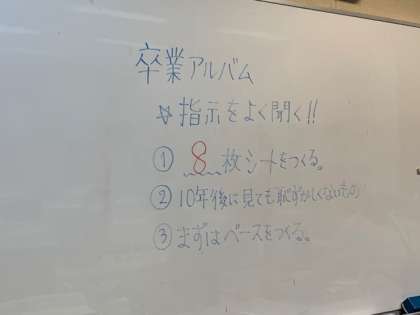 卒業アルバム
☆指示をよく聞く!!
① 8枚シートをつくる。
② 10年後に見ても恥ずかしくないもの
③ まずはベースをつくる。